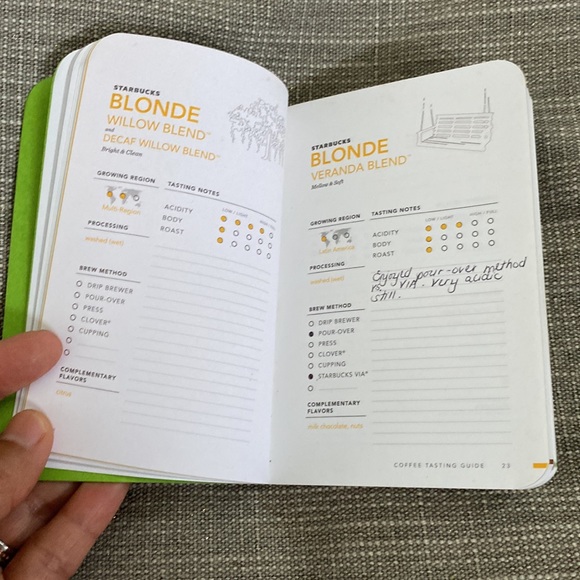 STARBUCKS
BLONDE
WILLOW BLEND™
and
DECAF WILLOW BLEND™
Bright & Clean
GROWING REGION
Multi-Region
PROCESSING
washed (wet)
TASTING NOTES
LOW / LIGHT HIGH / FULL
ACIDITY
BODY
ROAST
BREW METHOD
DRIP BREWER
POUR-OVER
PRESS
CLOVER®
CUPPING
COMPLEMENTARY
FLAVORS
citrus
STARBUCKS
BLONDE
VERANDA BLEND™
Mellow & Soft
GROWING REGION
Latin America
PROCESSING
washed (wet)
TASTING NOTES
LOW / LIGHT HIGH / FULL
ACIDITY
BODY
ROAST
Enjoyed pour-over method
VIA. Very acidic
still.
BREW METHOD
DRIP BREWER
POUR-OVER
PRESS
CLOVER®
CUPPING
STARBUCKS VIA®
COMPLEMENTARY
FLAVORS
milk chocolate, nuts
COFFEE TASTING GUIDE 23